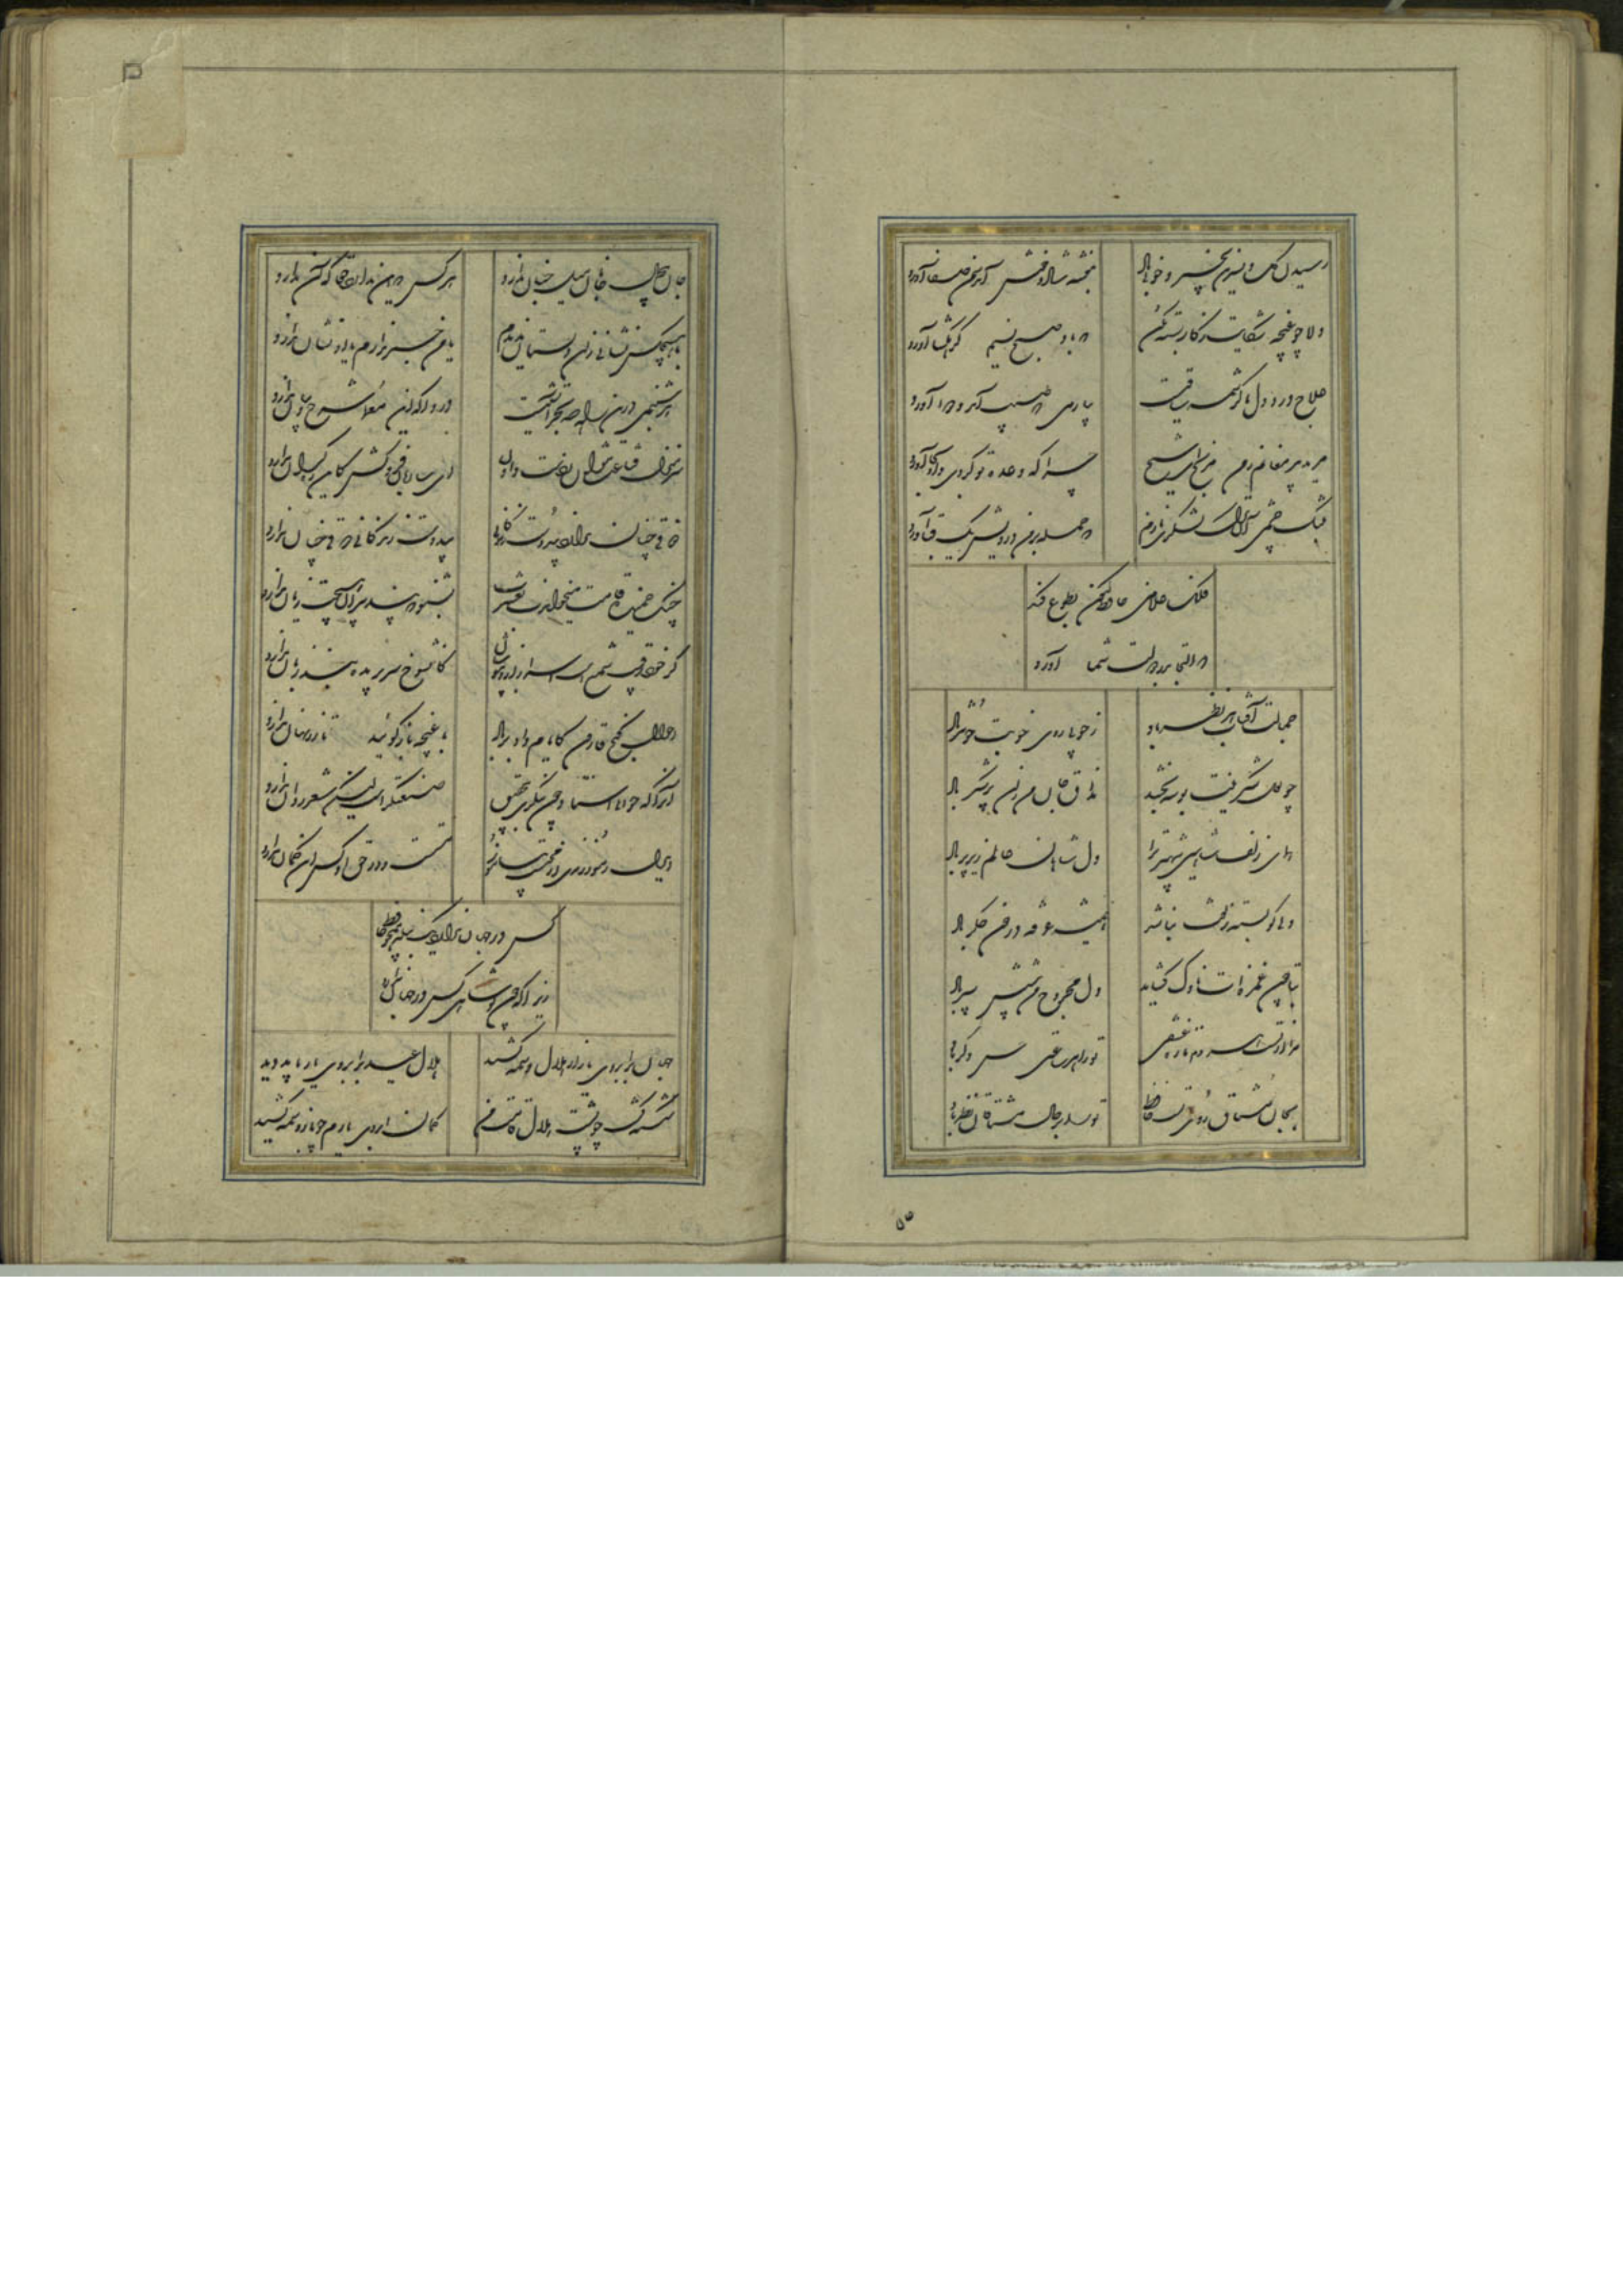 رسیدن گل و نسرین بخیر و خوبی باد بنفشه شاد و خوش آمد سمن صفا آورد
دلا چو غنچه شکایت ز کار بسته مکن که باد صبح نسیم گره گشا آورد
علاج درد دل ما کرشمه ساقیست
مرید پیر مغانم ز من مرنج ای شیخ چرا که وعده تو کردی و او بجا آورد
به تنگ چشمی آن ترک لشکری نازم که حمله بر من درویش یک قبا آورد
فلک غلامی حافظ کنون بطوع کند
که التجا بدر دولت شما آورد
جمالت آفتاب هر نظر باد ز خوبی روی خوبت خوبتر باد
چو لعل شکرینت بوسه بخشد مذاق جان من زان پر شکر باد
همای زلف شاهین شهپرت را دل شاهان عالم زیر پر باد
دلی کو بسته زلفت نباشد همیشه غرقه در خون جگر باد
بتا چون غمزه ات ناوک گشاید دل مجروح من پیشش سپر باد
مرا از تست هر دم تازه عشقی ترا هر ساعتی حسن دگر باد
بجان مشتاق روی تست حافظ ترا بر حال مشتاقان نظر باد
۵۵
جان بی جمال جانان میل جهان ندارد هر کس که این ندارد حقا که آن ندارد
با هیچکس نشانی زان دلستان ندیدم یا من خبر ندارم یا او نشان ندارد
هر شبنمی درین ره صد بحر آتشین است دردا که این معما شرح و بیان ندارد
سر منزل قناعت نتوان ز دست دادن ای ساربان فروکش کاین ره کران ندارد
ذوقی چنان ندارد بی دوست زندگانی بی دوست زندگانی ذوقی چنان ندارد
چنگ خمیده قامت میخواندت بعشرت بشنو که پند پیران هیچت زیان ندارد
گر خود رقیب شمع است اسرار ازو بپوشان کان شوخ سر بریده بند زبان ندارد
احوال گنج قارون کایام داد بر باد با غنچه باز گوئید تا زر نهان ندارد
آنرا که خوانی استاد چون بنگری بتحقیق صنعتگر است لیکن شعر روان ندارد
ای دل طریق رندی از محتسب بیاموز مست است و در حق او کس این گمان ندارد
کس در جهان ندارد یک بنده همچو حافظ
زیرا که چون تو شاهی کس در جهان ندارد
جهان بر ابروی عید از هلال وسمه کشید هلال عید بر ابروی یار باید دید
شکسته گشت چو پشت هلال قامت من کمان ابروی یارم چو باز وسمه کشید